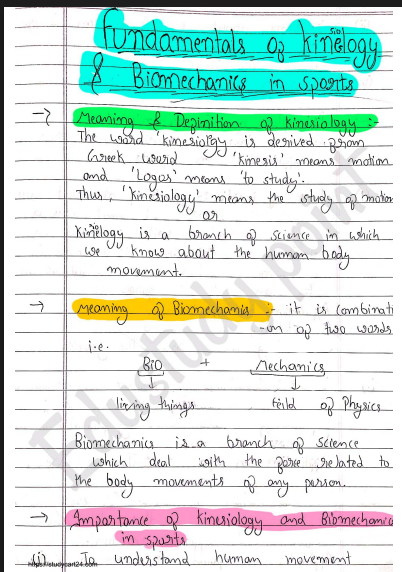 fundamentals of kinesiology
& Biomechanics in sports
→ Meaning & Definition of kinesiology :-
The word 'kinesiology is derived from
Greek word 'kinesis' means motion
and 'Logos' means 'to study'.
Thus, 'kinesiology' means the study of motion
or
Kinesiology is a branch of science in which
we know about the human body
movement.
→ Meaning of Biomechanics :- it is combinati
-on of two words
i.e.
Bio + Mechanics
↓ ↓
living things feild of Physics
Biomechanics is a branch of science
which deal with the force related to
the body movements of any person.
→ Importance of kinesiology and Biomechanics
in sports
(i) To understand human movement
https://studycart24.com
Edustudy point